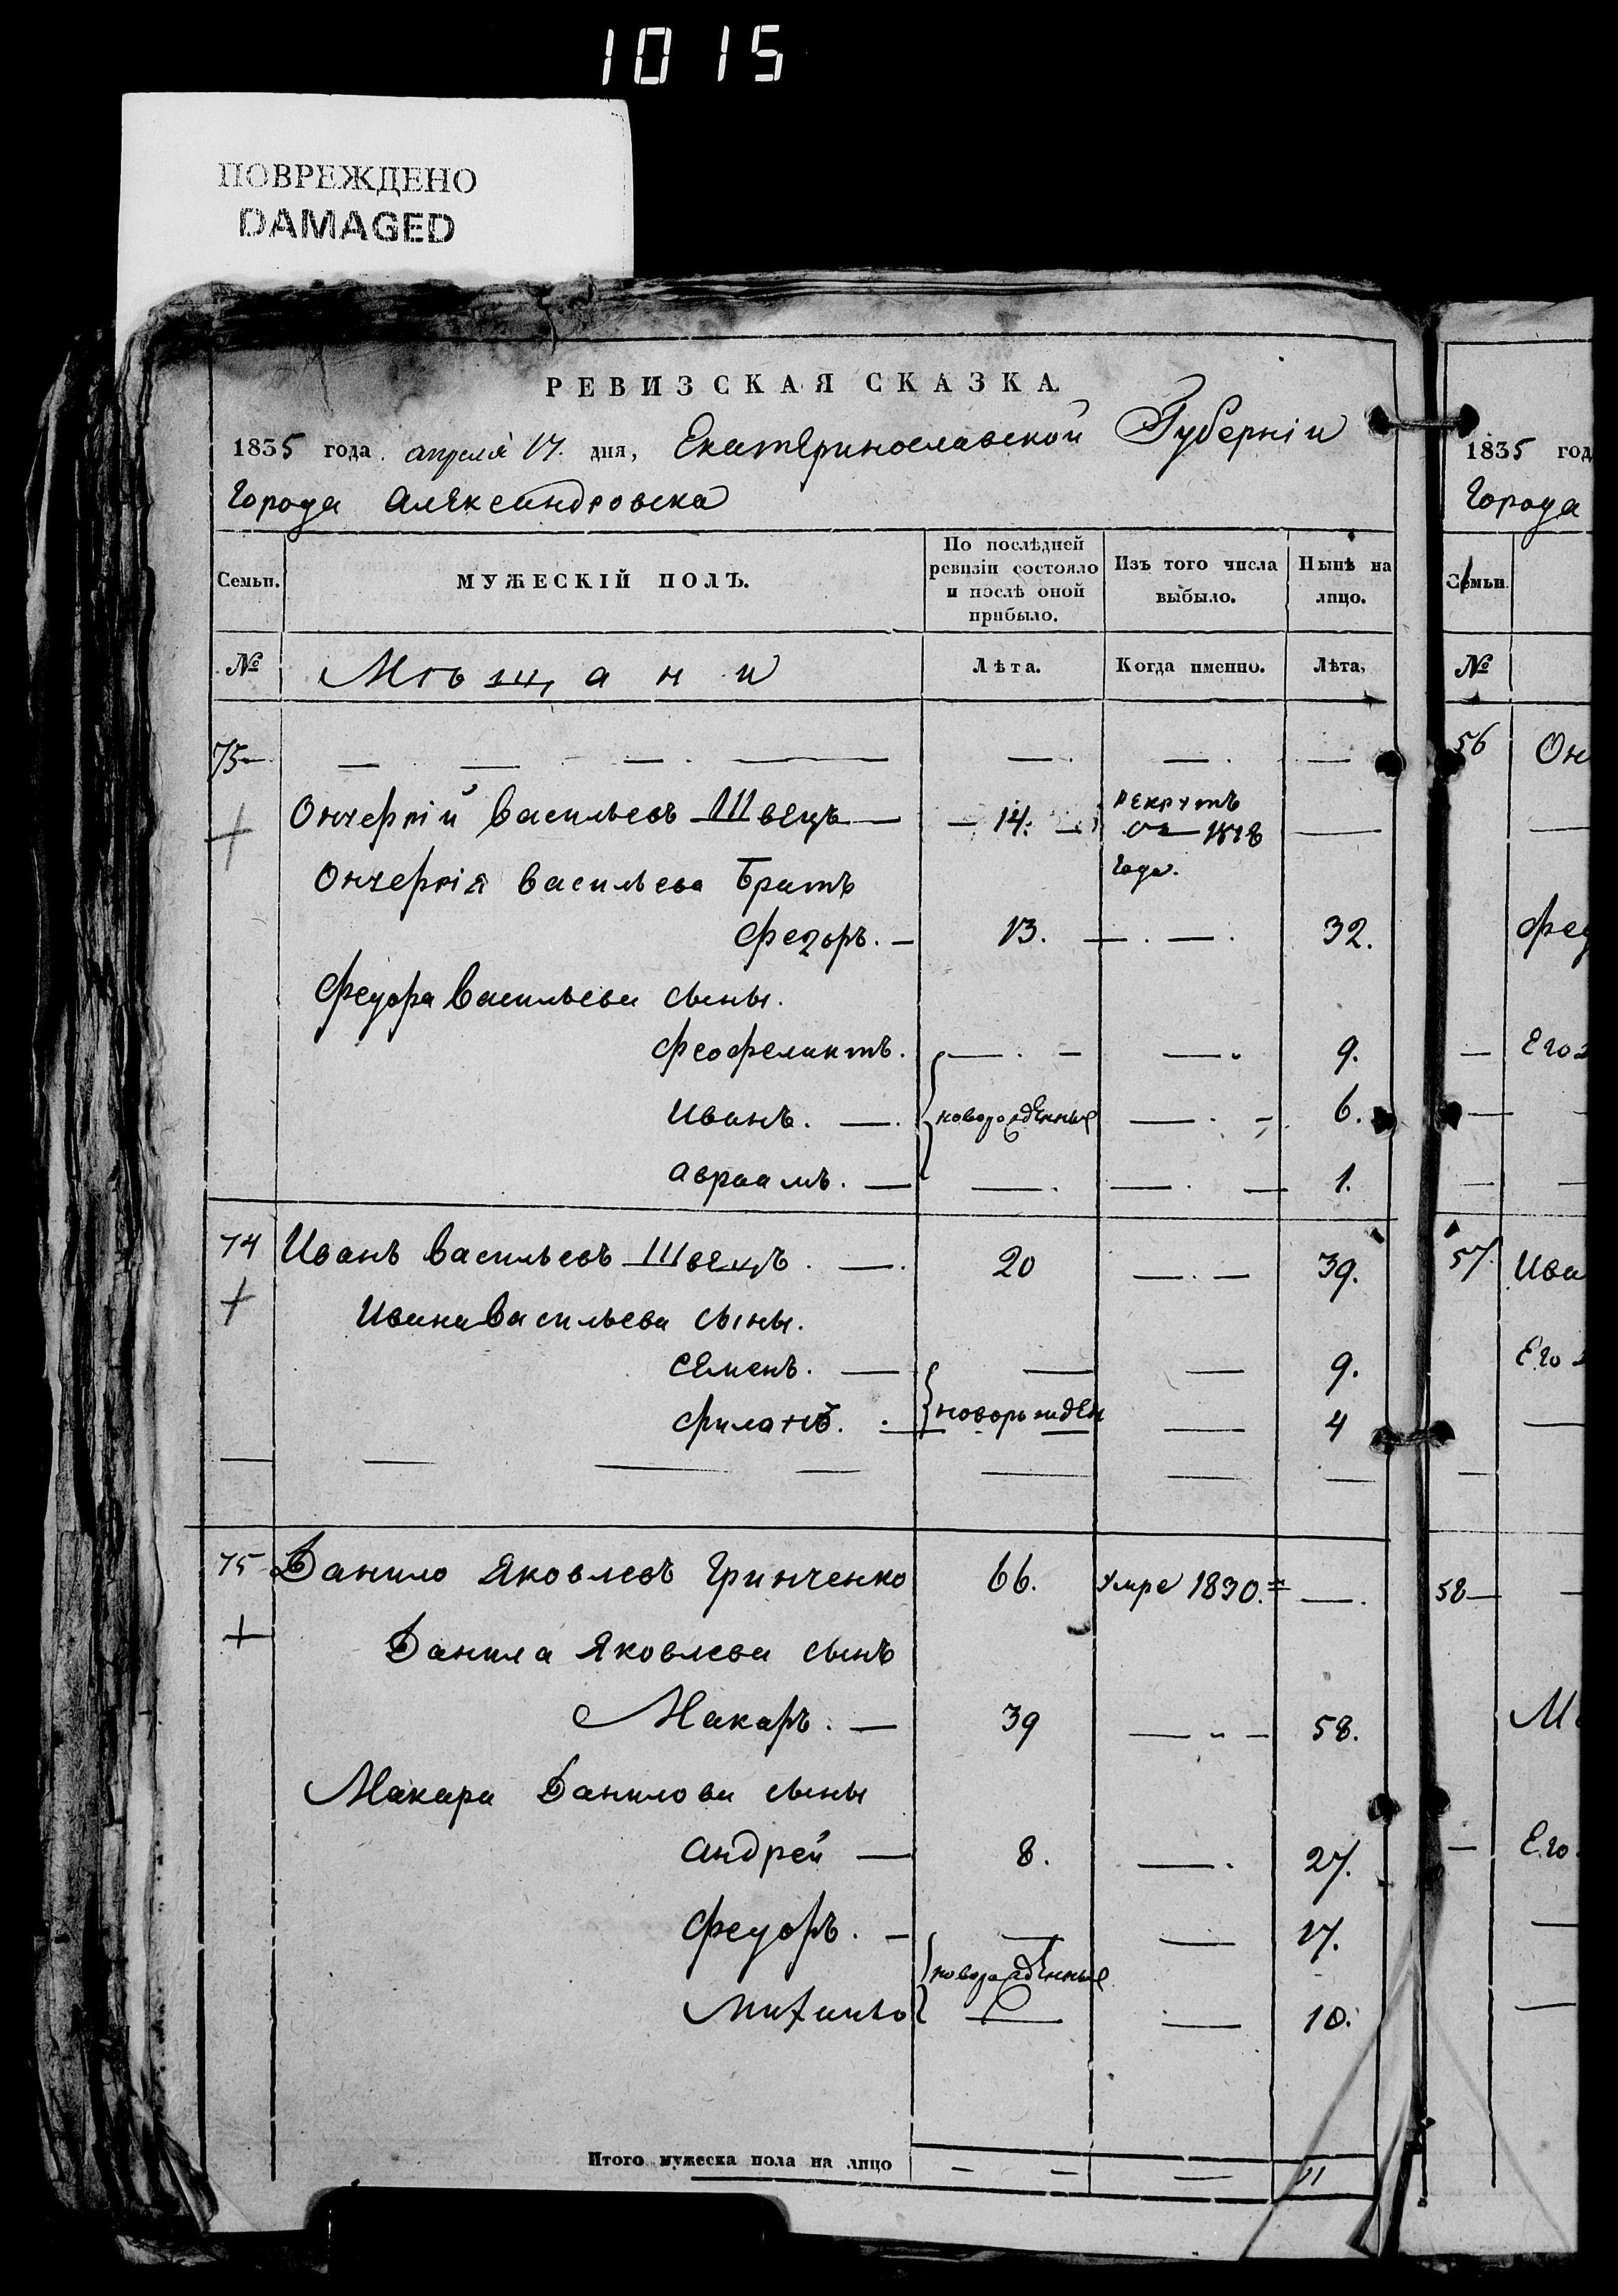 10 15
ПОВРЕЖДЕНО
DAMAGED
РЕВИЗСКАЯ СКАЗКА
1835 года апреля 17. дня, Екатеринославской Губерніи
Города Александровска
Семьи. МУЖЕСКІЙ ПОЛЪ. По послѣдней ревизіи состояло и послѣ оной прибыло. Изъ того числа выбыло. Нынѣ на лицо.
№ Мѣщани Лѣта. Когда именно. Лѣта,
75
Васильевъ Швецъ 14. рекрутъ
Года.
Васильева Братъ
Федоръ. 13. 32.
Федора Васильева сыны.
Феофелактъ. 9.
Иванъ. новорожденные 6.
Авраамъ. 1.
74 Иванъ Васильевъ Швецъ. 20 39.
Ивана Васильева сыны.
Семенъ. 9.
новорожден 4
75 Данило Яковлевъ Гринченко 66. Умре 1830.
Данила Яковлева сынъ
Макаръ. 39 58.
Макара Данилова сыны
Андрей 8. 27.
Федоръ. 17.
новорожденные
10.
Итого мужеска пола на лицо 11
1835 год
Города
Семьи
№
56 Он
Фед
Его
57 Ива
Его
58
М
Его